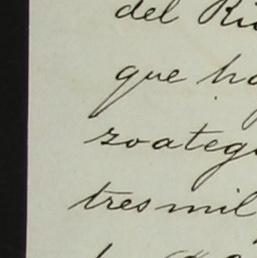 del Ri
que ha
zoategu
tres mil